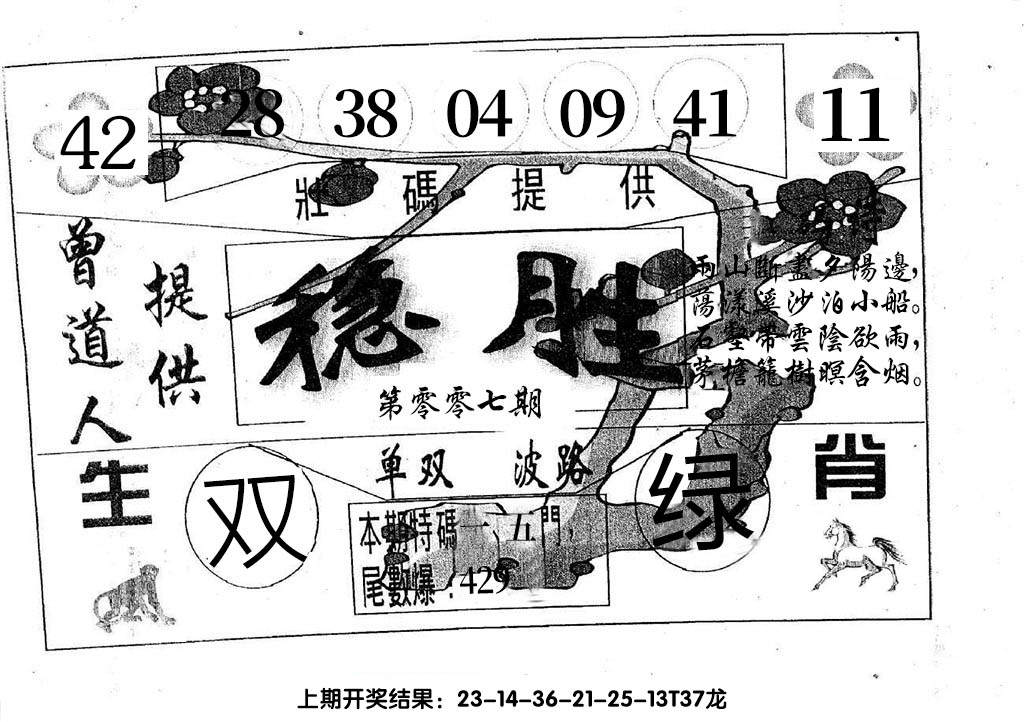 42 28 38 04 09 41 11
壯碼提供
特
曾道人
提供
稳胜
第零零七期
雨山斷盡夕陽邊，
蕩漾溪沙泊小船。
石壑帶雲陰欲雨，
茅檐籠樹暝含烟。
单双 波路
生肖
双
绿
本期特碼一、五門，
尾數爆：429
上期开奖结果：23-14-36-21-25-13T37龙